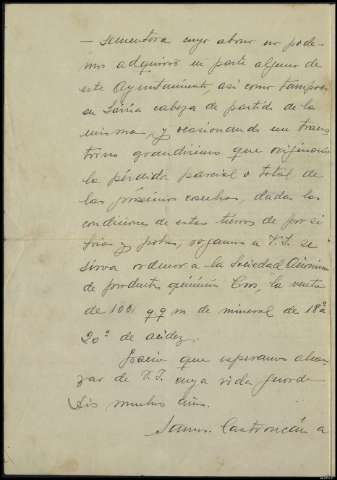 — sementera cuyo abono no pode-
mos adquirir en parte alguna de
este Ayuntamiento así como tampoco
en Sarria cabeza de partido de la
misma, y ocasionando un tras-
torno grandísimo que originaría
la pérdida parcial o total de
las próximas cosechas, dadas las
condiciones de estas tierras de por sí
frías y pobres, rogamos a V.I. se
sirva ordenar a la Sociedad Anónima
de productos químicos Cros, la venta
de 100 q q m de mineral de 18 a
20º de acidez.
Gracia que esperamos alcan-
zar de V.I. cuya vida guarde
Dios muchos años.
Castroncán a